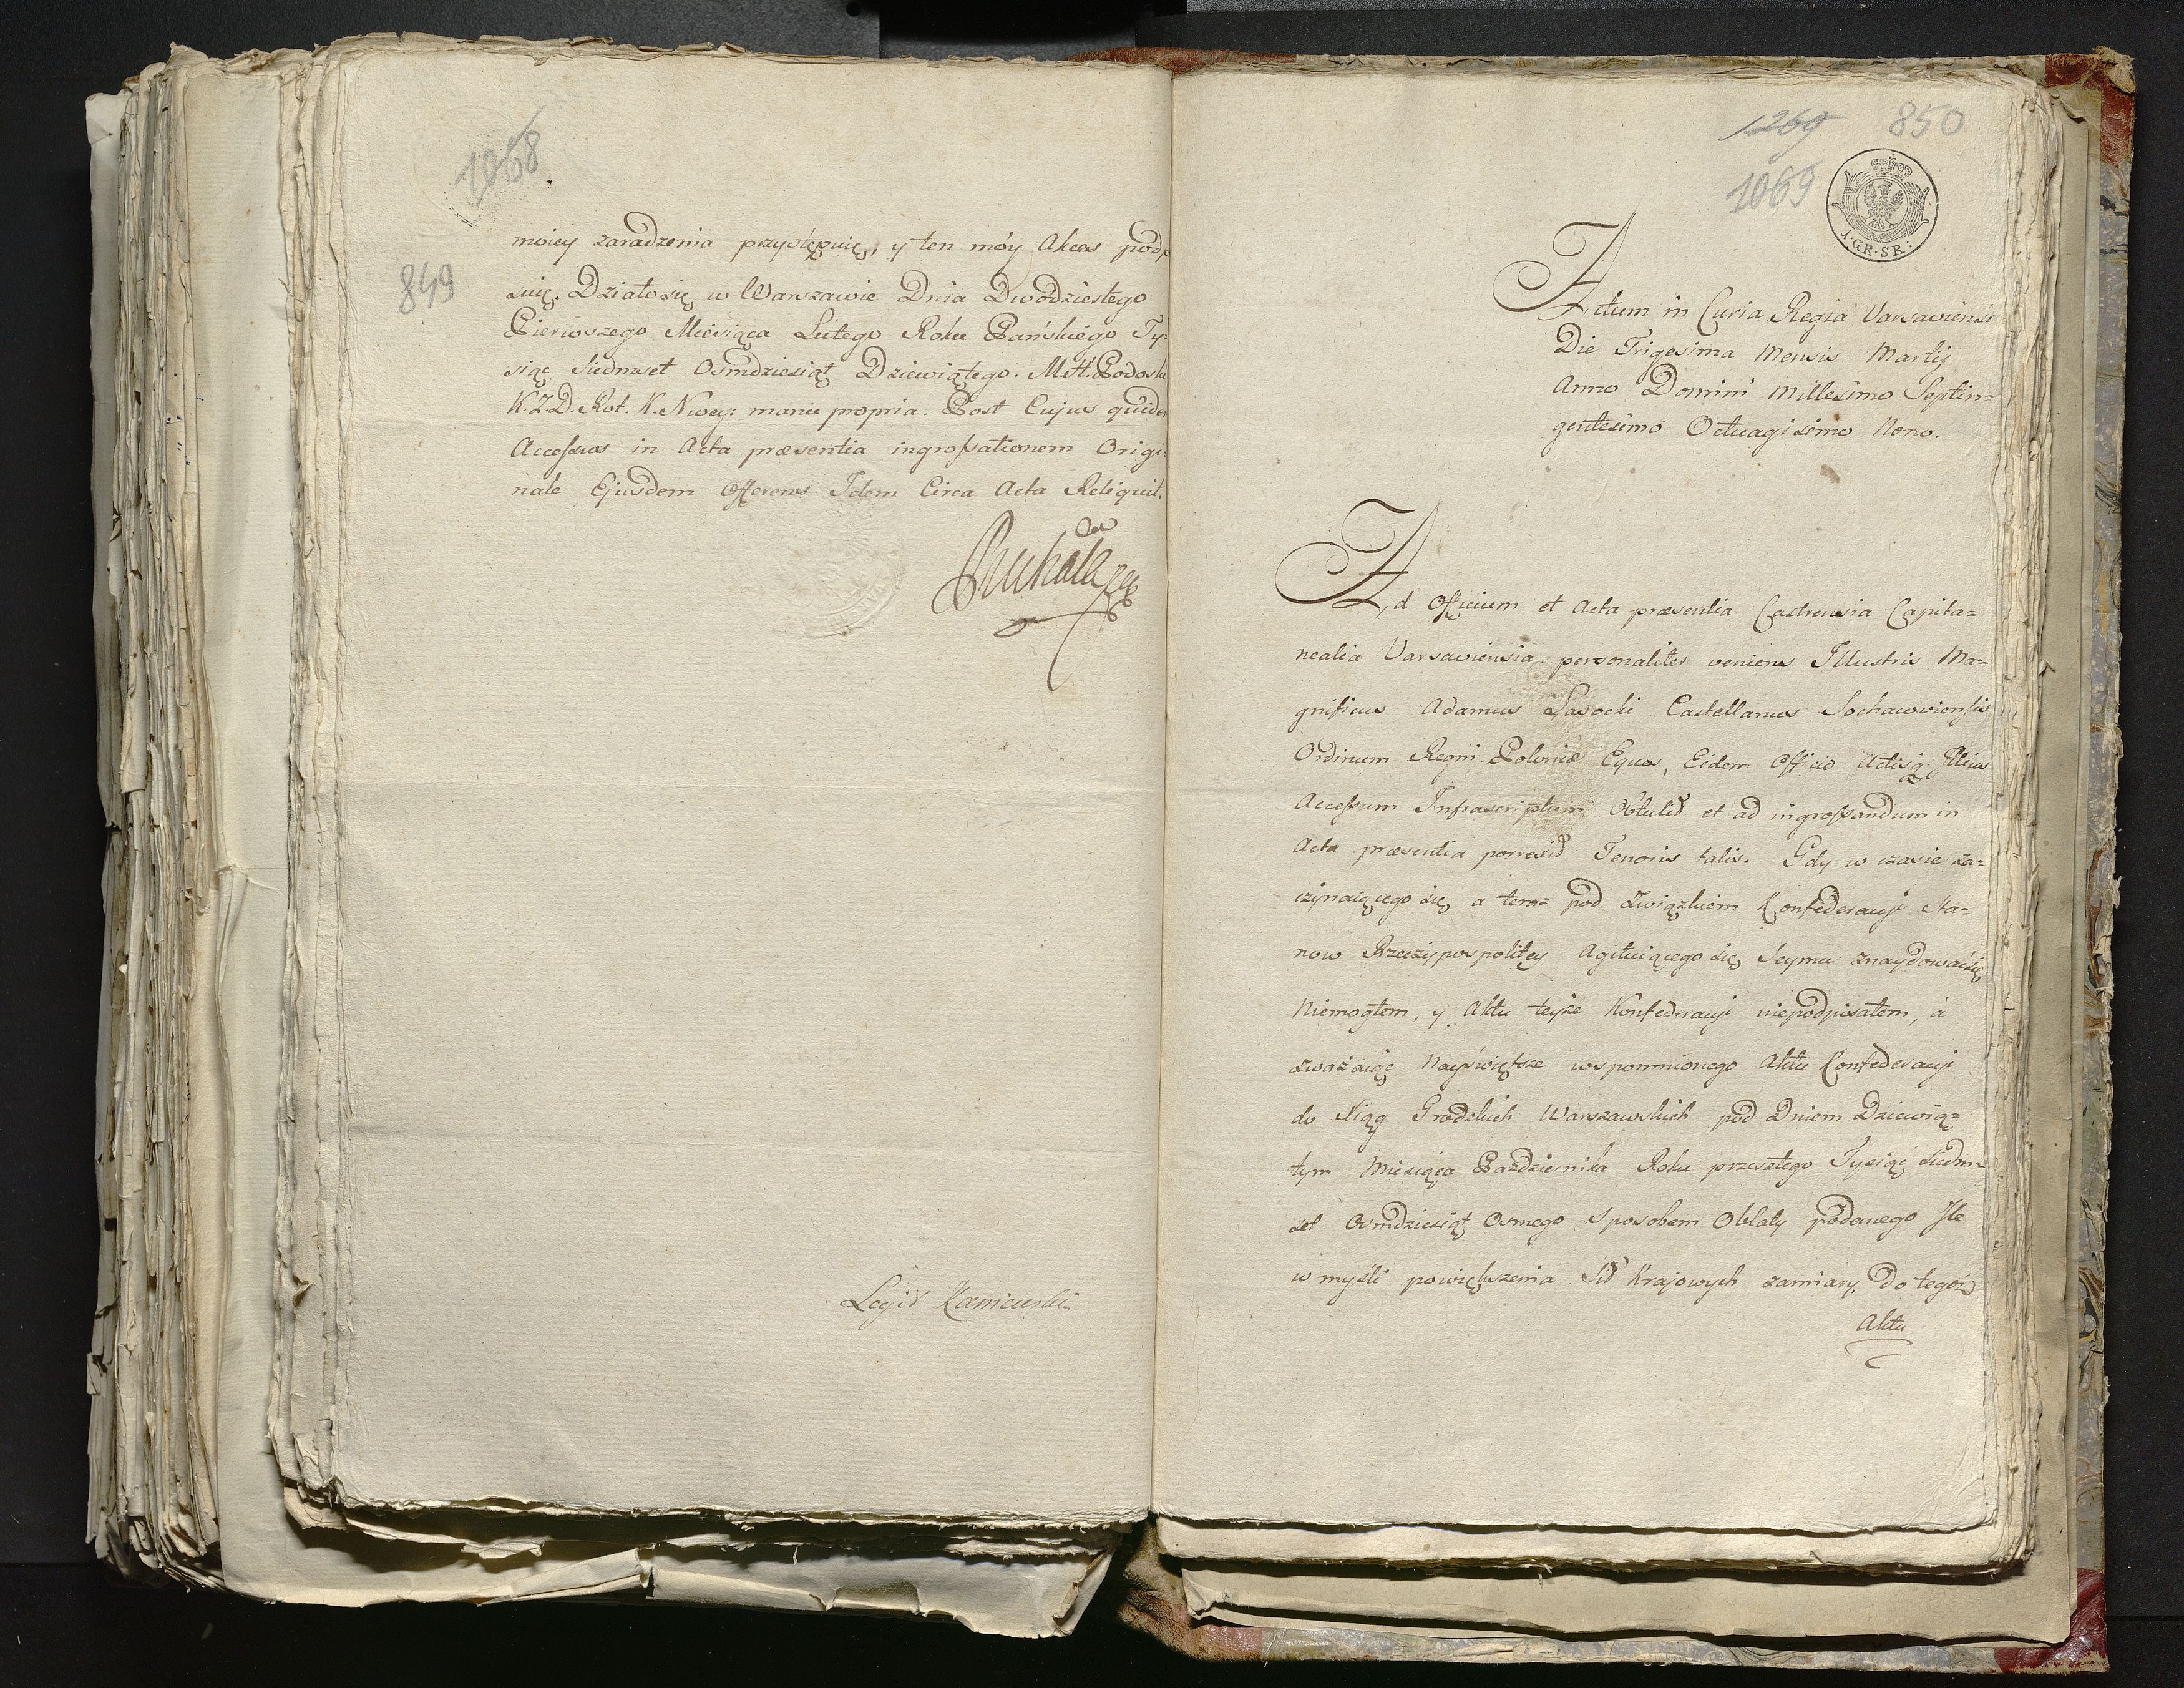 1068
849
moiey zaradzenia przystępuię, y ten móy Akces podp
suię. Działo się w Warszawie Dnia Dwodziestego
Pierwszego Miesiąca Lutego Roku Pańskiego Ty-
siąc Siedmset Osmdziesiąt Dziewiątego. M.H. Podoski
K.Z.D. Rot. K. Nwey: manu propria. Post Cujus quidem
Accessus in Acta præsentia ingrossationem Origi-
nale Ejusdem Offerens Idem Circa Acta Reliquit.
Legit Kaniewski
1269 850
1069
1·GR·SR:
Actum in Curia Regia Varsaviensi
Die Trigesima Mensis Martij
Anno Domini Millesimo Septin=
gentesimo Octuagisimo Nono.
Ad Officium et Acta præsentia Castrensia Capita=
nealia Varsaviensia personaliter veniens Illustris Ma=
gnificus Adamus Lasocki Castellanus Sochaczoviensis
Ordinum Regni Poloniæ Eques, Eidem Officio Actisq Illius
Accessum Infrascriptum Obtulit et ad ingrossandum in
Acta præsentia porrexit Tenoris talis. Gdy w czasie za=
czynaiącego się, a teraz pod Związkiem Konfederacyi Sta=
now Rzeczypospolitey Agituiącego się Seymu znaydować się
Niemogłem, y Aktu teyże Konfederacyi niepodpisałem, á
zważaiąc Nayświętsze wspomnionego Aktu Confederacyi
do Xiąg Grodzkich Warszawskich pod Dniem Dziewią=
tym Miesiąca Października Roku przeszłego Tysiąc Siedm=
set Osmdziesiąt Osmego Sposobem Oblaty podanego Jle
w myśli powiększenia Sił Krajowych zamiary, Do tegoż
Aktu